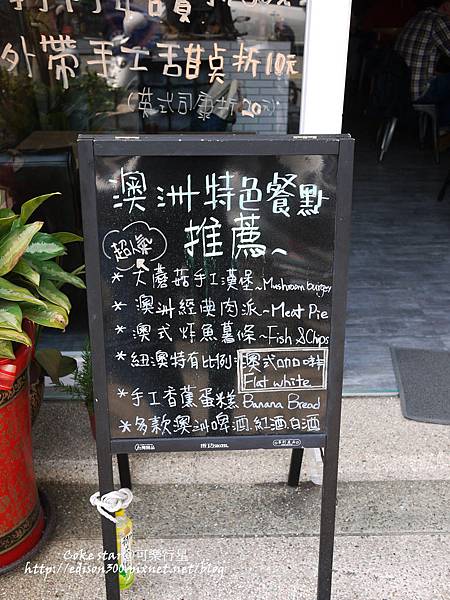 外帶手工甜點折10元
(英式司康折20元)
澳洲特色餐點
推薦~
超人氣
* 大蘑菇手工漢堡~Mushroom burger
* 澳洲經典肉派~Meat Pie
* 澳式炸魚薯條~Fish & Chips
* 紐澳特有比例澳式咖啡
Flat white
* 手工香蕉蛋糕 Banana Bread
* 多款澳洲啤酒.紅酒.白酒
Coke star 可樂行星
http://edison300.pixnet.net/blog